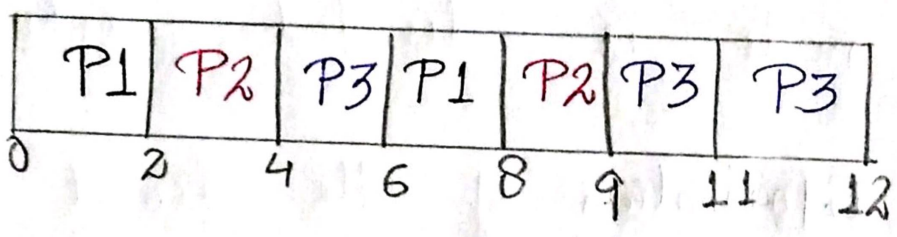 P1 P2 P3 P1 P2 P3 P3
0 2 4 6 8 9 11 12